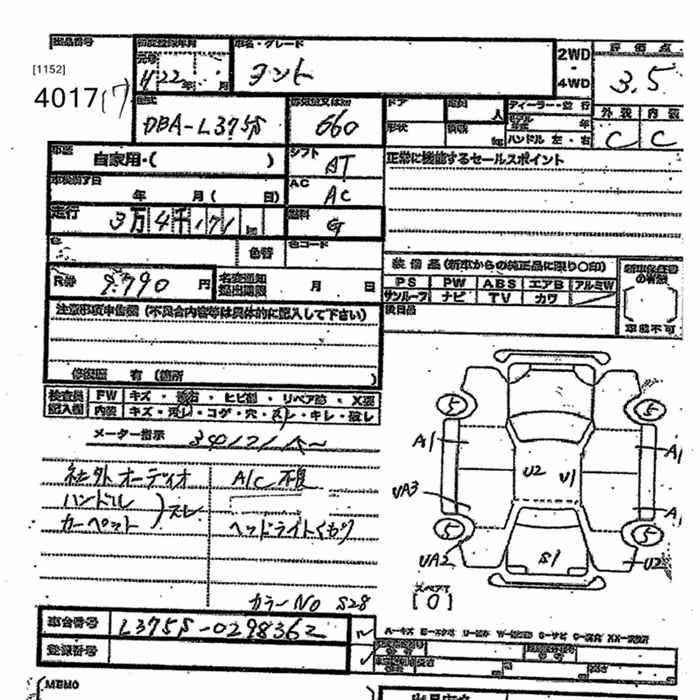 出品番号 初度登録年月 車名・グレード 2WD 評価点
[1152] 22年 月 タント 4WD 3.5
4017 型式 排気量又はkw ドア 定員 人 ディーラー・並行 外装 内装
DBA-L375S 660 形状 積載 kg モデル年式 年 ハンドル 左・右 C C
車歴 自家用・( ) シフト AT 正常に機能するセールスポイント
車検満了日 年 月( 日) AC AC
走行 3万4千171 km 燃料 G
色 色替 色コード
装備品(新車からの純正品に限り○印) 新車保証書の有無
R券 9,790 円 名変通知提出期限 月 日 PS PW ABS エアB アルミW
サンルーフ ナビ TV カワ 車載不可
注意事項申告欄(不具合内容等は具体的に記入して下さい) 後日品
修復歴 有(箇所 )
検査員記入欄 FW キズ・飛石・ヒビ割・リペア跡・X要
内装 キズ・汚レ・コゲ・穴・スレ・キレ・破レ
メーター指示 34171
社外オーディオ A/C不良
ハンドル スレ
カーペット ヘッドライトくもり
カラーNo S28
5 5
A1 A1
U2 U1
UA3 A1
5 5
UA2 S1 U2
スペアT
[0]
車台番号 L375S-0298362
登録番号
MEMO